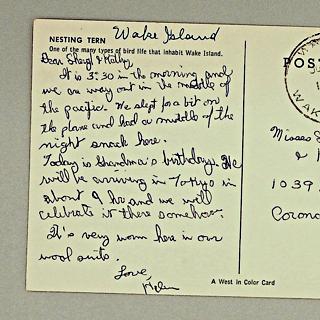 Wake Island
NESTING TERN
One of the many types of bird life that inhabit Wake Island.
Dear Sheryl & Kathy,
It is 3:30 in the morning and
we are way out in the middle of
the pacific. We slept for a bit on
the plane and had a middle of the
night snack here.
Today is Grandma's birthday. We
will be arriving in Tokyo in
about 9 hrs and we will
celebrate it there somehow.
It's very warm here in our
wool suits.
Love,
Helen
A West in Color Card
POS
WAK
Misses S
&
1039
Corona